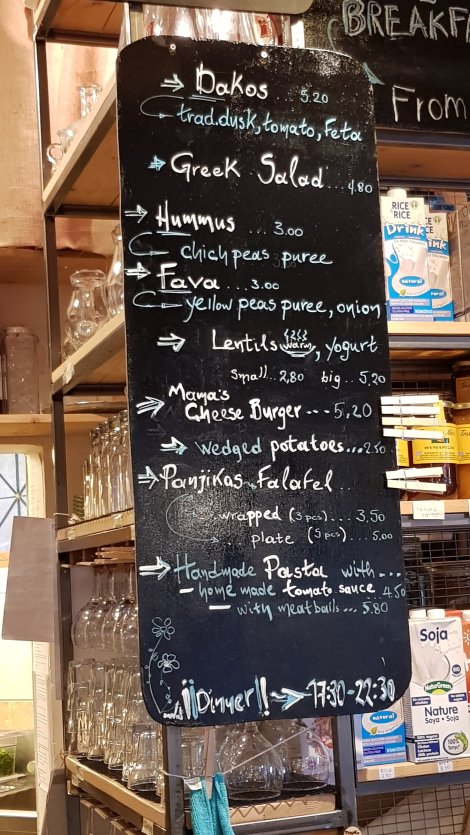 BREAKF
From
Dakos 5.20
trad.dusk, tomato, Feta
Greek Salad...4.80
Hummus ...3.00
chich peas puree
Fava ...3.00
yellow peas puree, onion
Lentils warm, yogurt
small...2,80 big...5,20
Mama's
Cheese Burger---5,20
wedged potatoes...2.50
Panjikas Falafel..
...wrapped (3 pcs)...3,50
... plate (5 pcs)...5.00
Handmade Pasta with---
- home made tomato sauce 4.50
- with meatballs...5.80
!!Dinner!! 17:30-22:30
RICE
RICE
Drink
natural
Soja
NaturGreen
Nature
Soya • Soja
natural